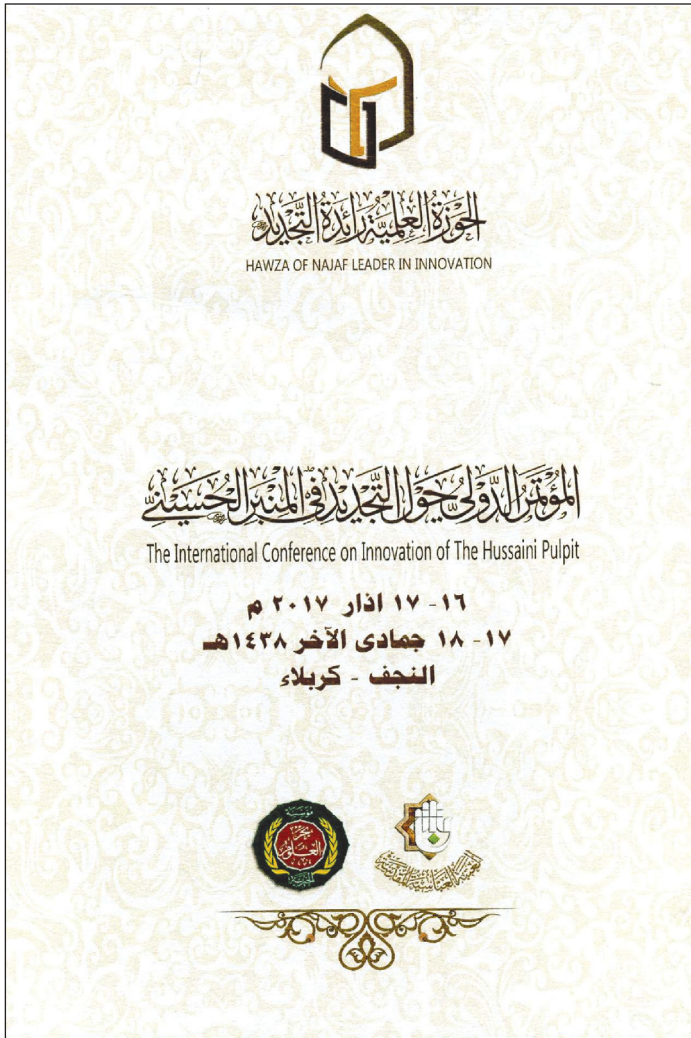 الحوزة العلمية رائدة التجديد
HAWZA OF NAJAF LEADER IN INNOVATION
المؤتمر الدولي حول التجديد في المنبر الحسيني
The International Conference on Innovation of The Hussaini Pulpit
١٦- ١٧ اذار ٢٠١٧ م
١٧- ١٨ جمادى الآخر ١٤٣٨هـ
النجف - كربلاء
مؤسسة
بحر
العلوم
الخيرية
العتبة العباسية المقدسة